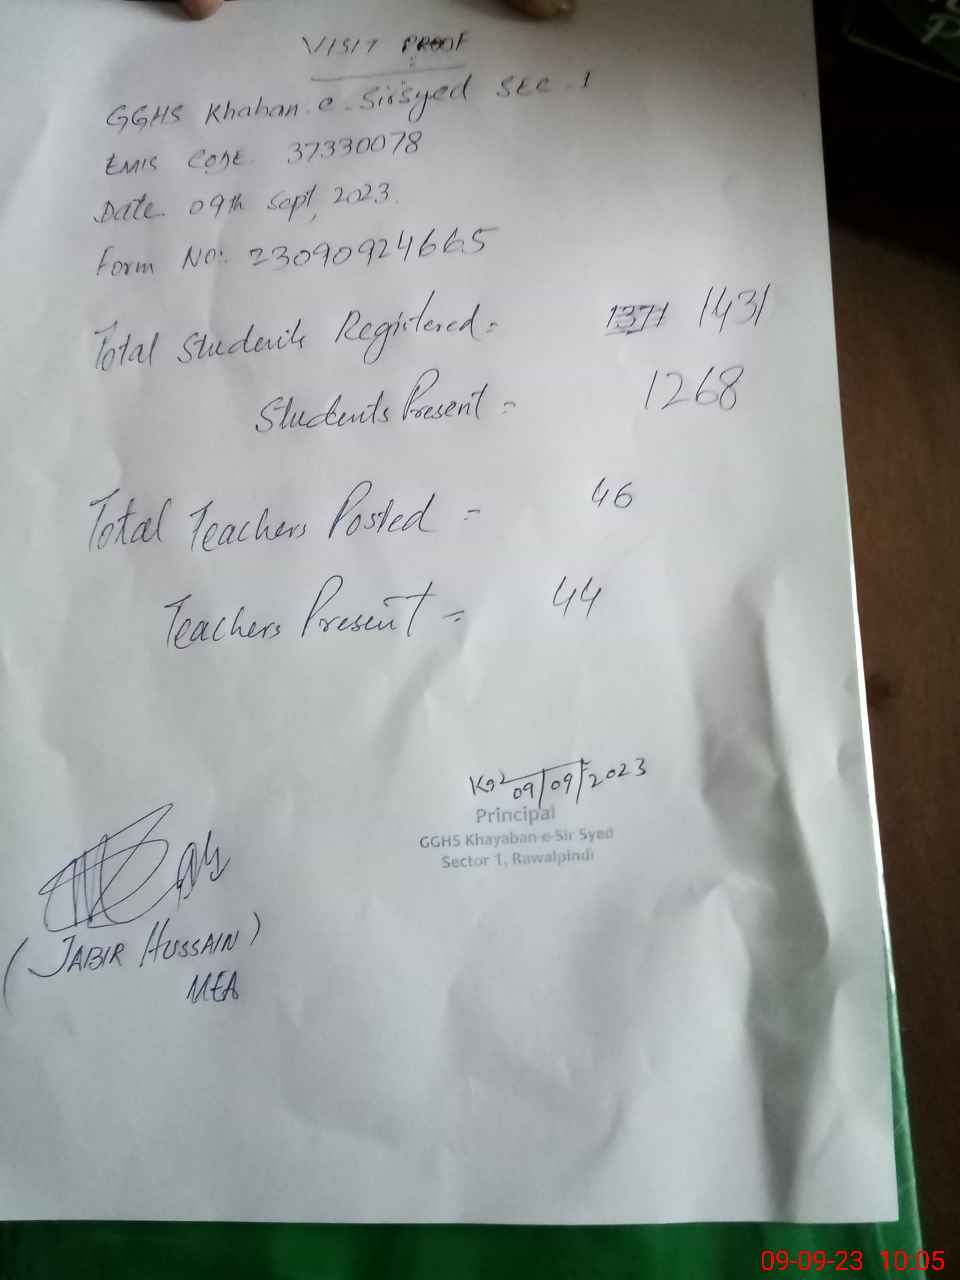 VISIT PROOF
GGHS Khaban.e.SirSyed Sec.1
EMIS Code. 37330078
Date 09th Sept, 2023.
Form No:. 23090924665
Total Students Registered = 1371 1431
Students Present = 1268
Total Teachers Posted = 46
Teachers Present = 44
09/09/2023
Principal
GGHS Khayaban-e-Sir Syed
Sector 1, Rawalpindi
(JABIR HUSSAIN)
MEA
09-09-23 10:05